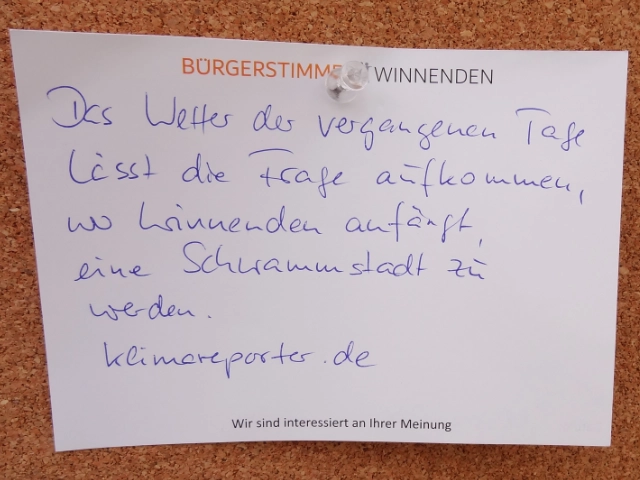 BÜRGERSTIMME WINNENDEN
Das Wetter der vergangenen Tage
lässt die Frage aufkommen,
wo Winnenden anfängt,
eine Schwammstadt zu
werden.
klimareporter.de
Wir sind interessiert an Ihrer Meinung